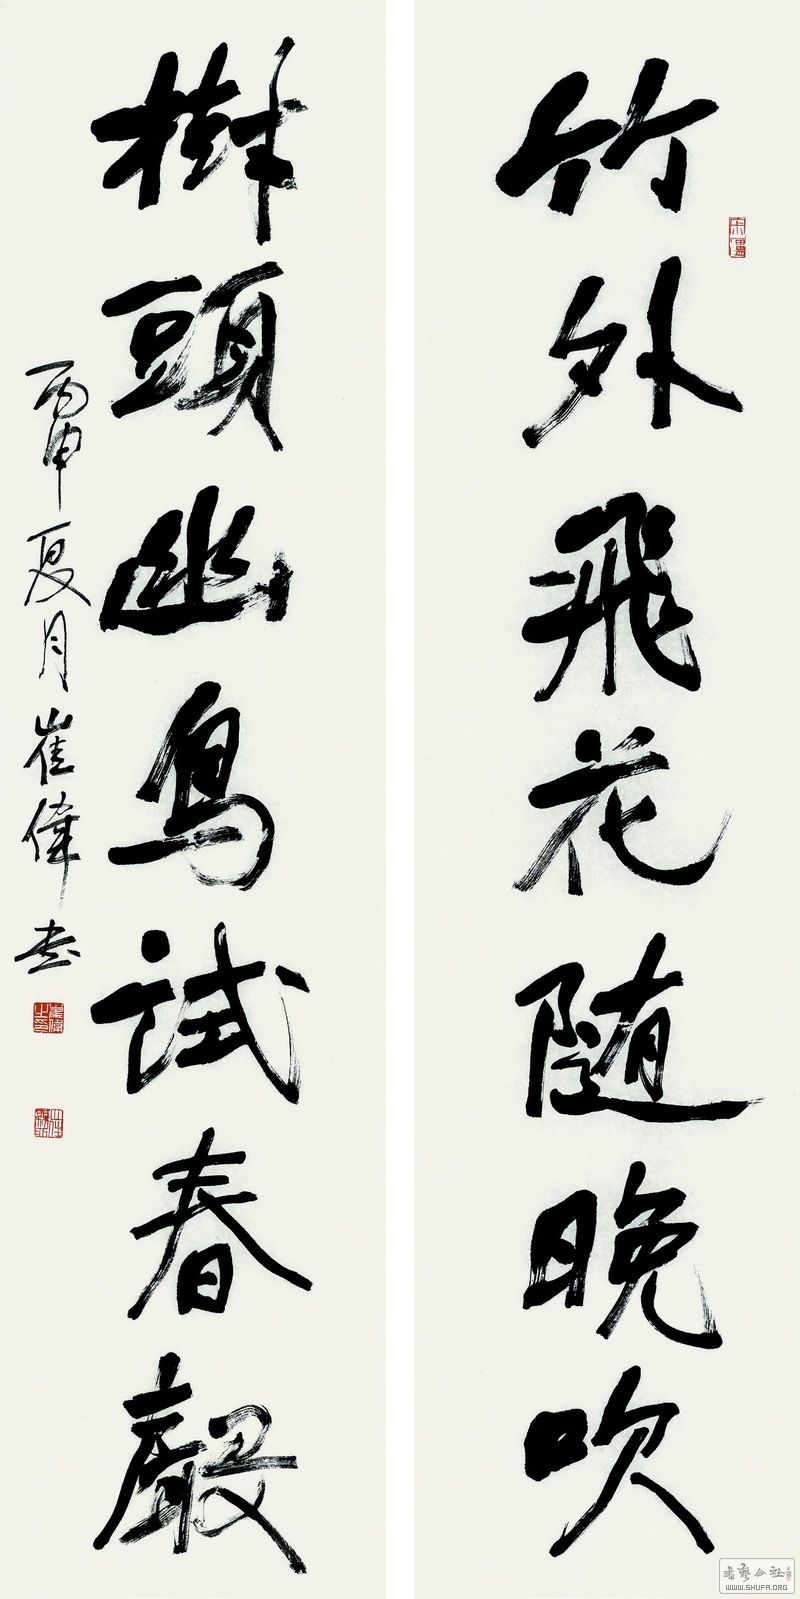 竹外飛花随晚吹
樹頭幽鳥試春聲
丙申夏月崔偉书
WWW.SHUFA.ORG